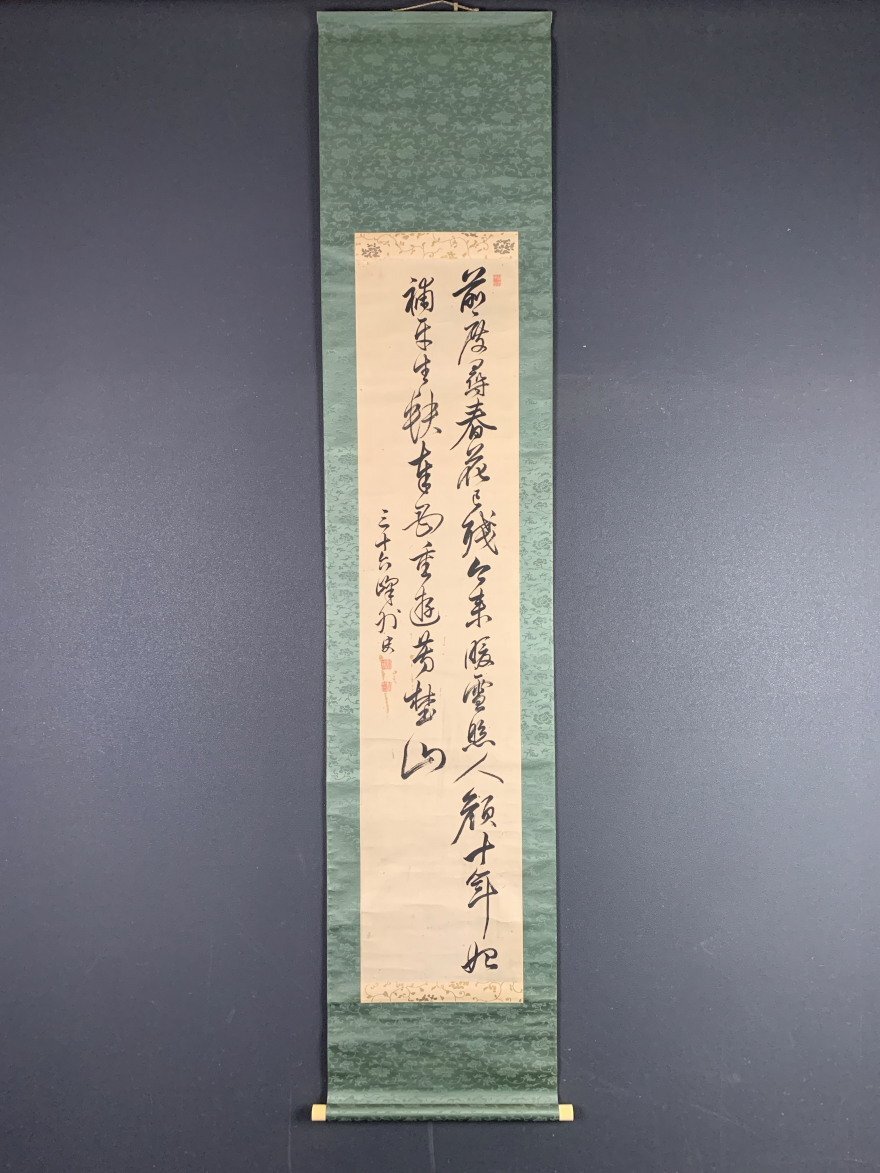 前度尋春花已残今来暖雪照人顔十年始
補平生缺奉母重遊芳埜山
三十六峰外史